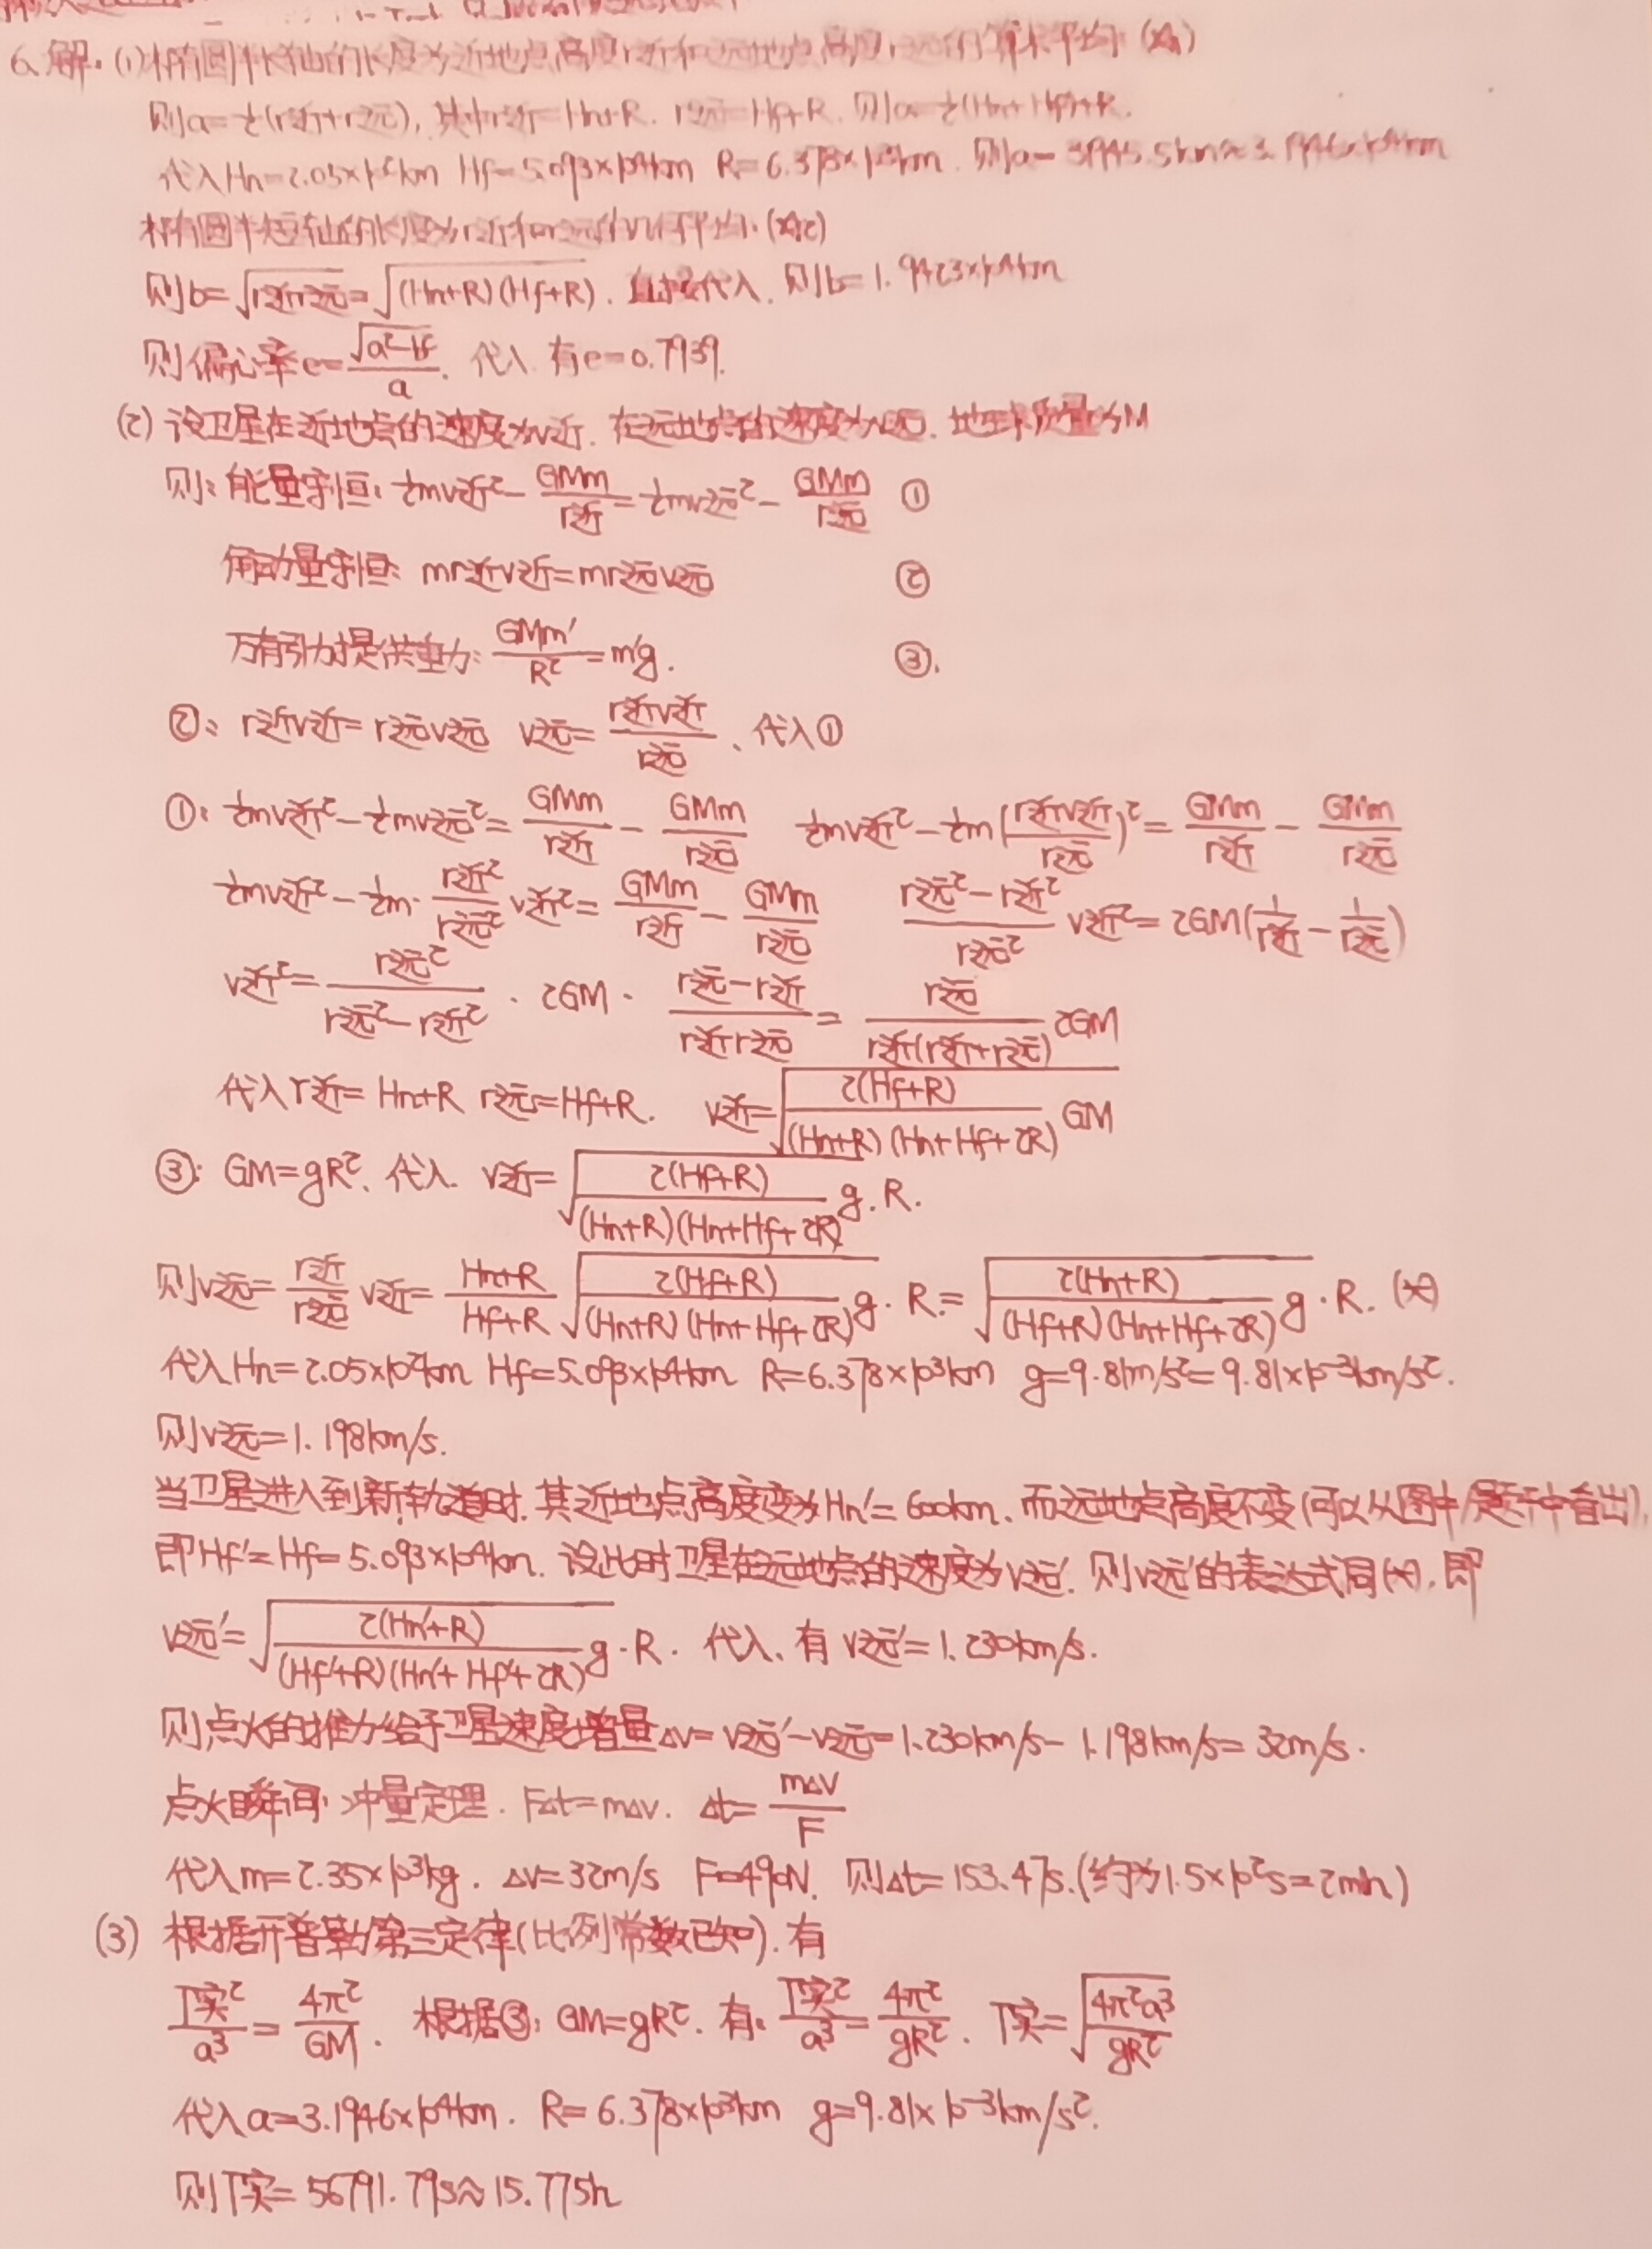 6. 解:(1)椭圆半长轴的长度为近地点高度r近和远地点高度r远的算术平均(*1)
则a=½(r近+r远), 其中r近=Hn+R. r远=Hf+R. 则a=½(Hn+Hf)+R.
代入Hn=2.05×10²km Hf=5.093×10⁴km R=6.378×10³km. 则a= 31945.5km≈3.1946×10⁴km
椭圆半短轴的长度为r近和r远的几何平均.(*2)
则b=√(r近r远)=√((Hn+R)(Hf+R)). 直接代入. 则b=1.9423×10⁴km
则偏心率e=√(a²-b²)/a. 代入 有e=0.7939.
(2) 设卫星在近地点的速度为v近. 在远地点的速度为v远. 地球质量为M
则: 能量守恒: ½mv近²-GMm/r近=½mv远²-GMm/r远 ①
角动量守恒: mr近v近=mr远v远 ②
万有引力提供重力: GMm'/R²=m'g. ③.
②: r近v近=r远v远 v远=r近v近/r远、代入①
①: ½mv近²-½mv远²=GMm/r近-GMm/r远 ½mv近²-½m(r近v近/r远)²=GMm/r近-GMm/r远
½mv近²-½m·r近²/r远² v近²=GMm/r近-GMm/r远 (r远²-r近²)/r远² v近²=2GM(1/r近-1/r远)
v近²=r远²/(r远²-r近²)·2GM·(r远-r近)/(r近r远)=r远/(r近(r近+r远)) 2GM
代入r近=Hn+R r远=Hf+R. v近=√(2(Hf+R)/((Hn+R)(Hn+Hf+2R)) GM)
③: GM=gR². 代入. v近=√(2(Hf+R)/((Hn+R)(Hn+Hf+2R)) g)·R.
则v远=r近/r远 v近=(Hn+R)/(Hf+R) √(2(Hf+R)/((Hn+R)(Hn+Hf+2R)) g)·R=√(2(Hn+R)/((Hf+R)(Hn+Hf+2R)) g)·R. (*)
代入Hn=2.05×10²km Hf=5.093×10⁴km R=6.378×10³km g=9.81m/s²=9.81×10⁻³km/s².
则v远=1.198km/s.
当卫星进入到新轨道时. 其近地点高度变为Hn'=600km. 而远地点高度不变(可以从图中/题干中看出).
即Hf'=Hf=5.093×10⁴km. 设此时卫星在远地点的速度为v远'. 则v远'的表达式同(*). 即
v远'=√(2(Hn'+R)/((Hf'+R)(Hn'+Hf'+2R)) g)·R. 代入. 有v远'=1.230km/s.
则点火的推力给予卫星速度增量Δv=v远'-v远=1.230km/s-1.198km/s=32m/s.
点火瞬间: 冲量定理. FΔt=mΔv. Δt=mΔv/F
代入m=2.35×10³kg. Δv=32m/s F=490N. 则Δt=153.47s.(约为1.5×10²s=2min)
(3) 根据开普勒第三定律(比例常数已知). 有
T实²/a³=4π²/GM. 根据③: GM=gR². 有: T实²/a³=4π²/gR². T实=√(4π²a³/gR²)
代入a=3.1946×10⁴km. R=6.378×10³km g=9.81×10⁻³km/s².
则T实=56791.79s≈15.775h